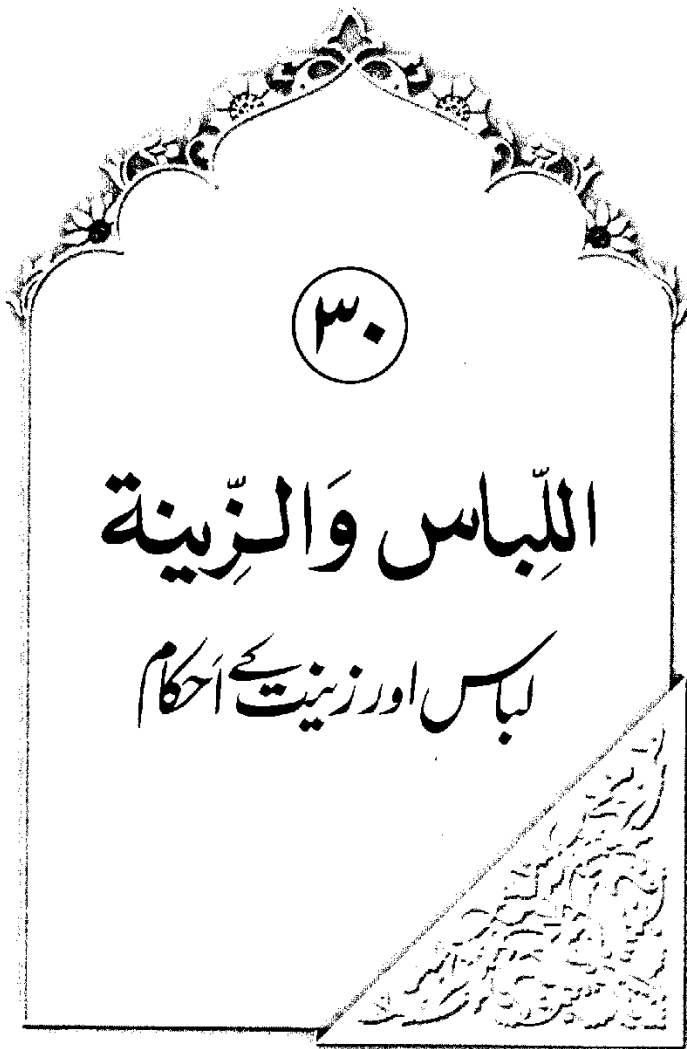 ۳۰
اللِّباس وَالزِّينة
لباس اور زینت کے اَحکام